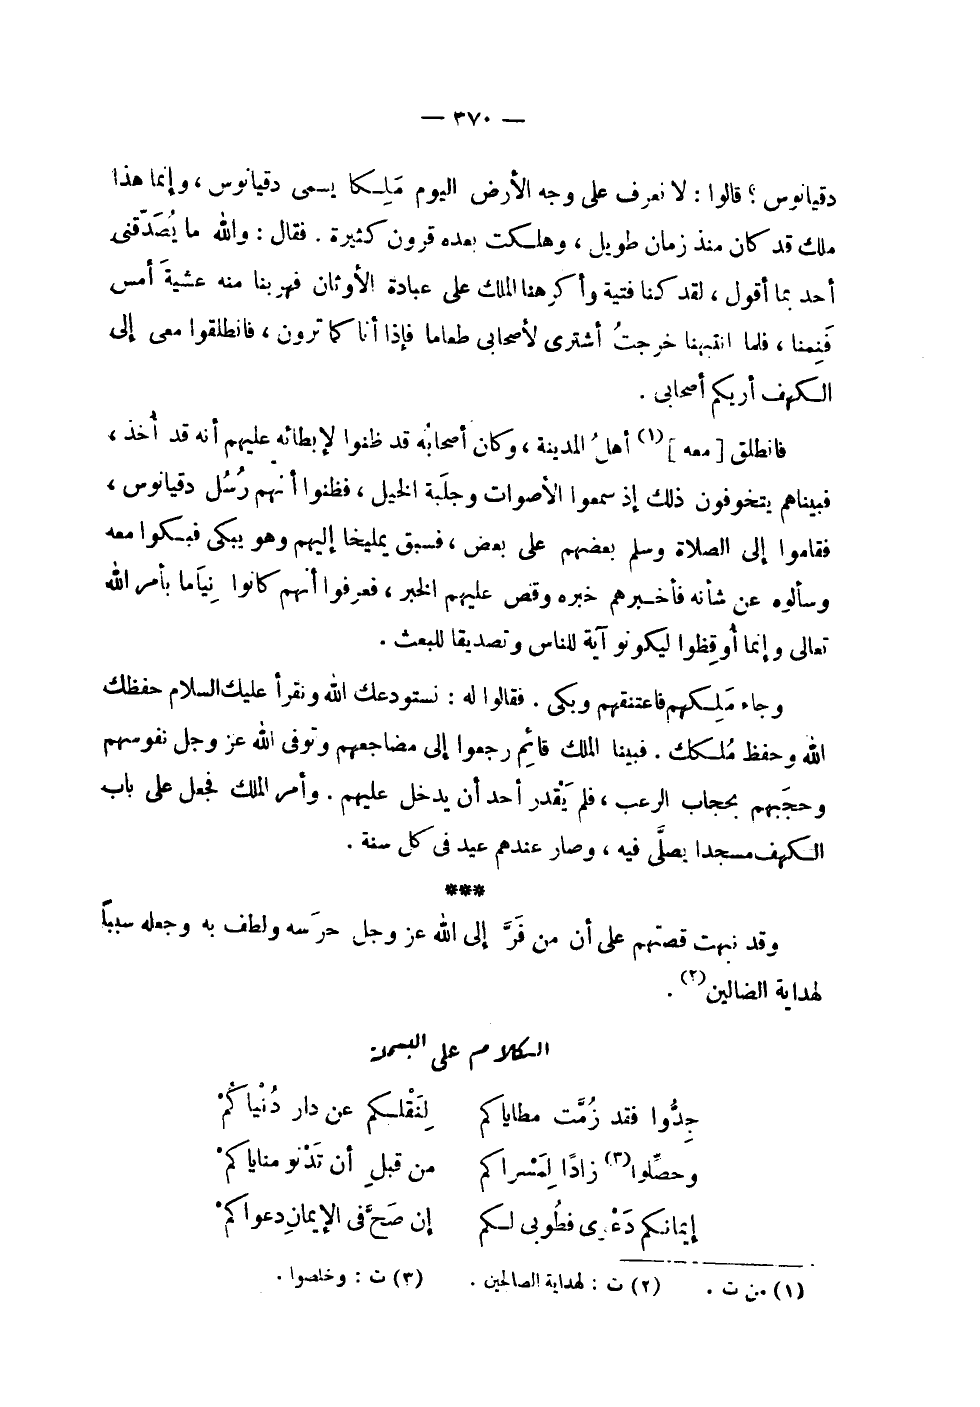 — ٣٧٠ —
دقيانوس ؟ قالوا : لا نعرف على وجه الأرض اليوم مَلِكا يسمى دقيانوس ، وإنما هذا
ملك قد كان منذ زمان طويل ، وهلكت بعده قرون كثيرة . فقال : والله ما يُصَدّقنى
أحد بما أقول ، لقد كنا فتية وأكرهنا الملك على عبادة الأوثان فهربنا منه عشيةَ أمس
فَنِمنا ، فلما انتبهنا خرجتُ أشترى لأصحابى طعاما فإذا أنا كما ترون ، فانطلقوا معى إلى
الكهف أريكم أصحابى .
فانطلق [ معه ] (١) أهلُ المدينة ، وكان أصحابُه قد ظنوا لإبطائه عليهم أنه قد أُخذ ،
فبيناهم يتخوفون ذلك إذ سمعوا الأصوات وجلَبة الخيل ، فظنوا أنهم رُسُل دقيانوس ،
فقاموا إلى الصلاة وسلم بعضهم على بعض ، فسبق يمليخا إليهم وهو يبكى فبكوا معه
وسألوه عن شأنه فأخبرهم خبره وقص عليهم الخبر ، فعرفوا أنهم كانوا نِيَاما بأمر الله
تعالى وإنما أُوقِظوا ليكونو آية للناس وتصديقا للبعث .
وجاء مَلِكهم فاعتنقهم وبكى . فقالوا له : نستودعك الله ونقرأ عليك السلام حفظك
الله وحفظ مُلكك . فبينا الملك قائم رجعوا إلى مضاجعهم وتوفى الله عز وجل نفوسهم
وحجَبهم بحجاب الرعب ، فلم يَقْدر أحد أن يدخل عليهم . وأمر الملك فجعل على باب
الكهف مسجدا يصلَّى فيه ، وصار عندهم عيد فى كل سنة .
***
وقد نبهت قصتهم على أن من فَرَّ إلى الله عز وجل حرَسه ولطف به وجعله سببًا
لهداية الضالين(٢) .
الكلام على البسملة
جِدُّوا فقد زُمَّت مطاياكم لِنَقْلكم عن دار دُنْياكُمْ
وحصِّلوا(٣) زادًا لِمَسْراكم من قبلِ أن تَدْنو مناياكمْ
إيمانكم دَعْوى فطُوبى لكم إن صَحَّ فى الإيمانِ دعواكمْ
(١) من ت . (٢) ت : لهداية الصالحين . (٣) ت : وخلصوا .